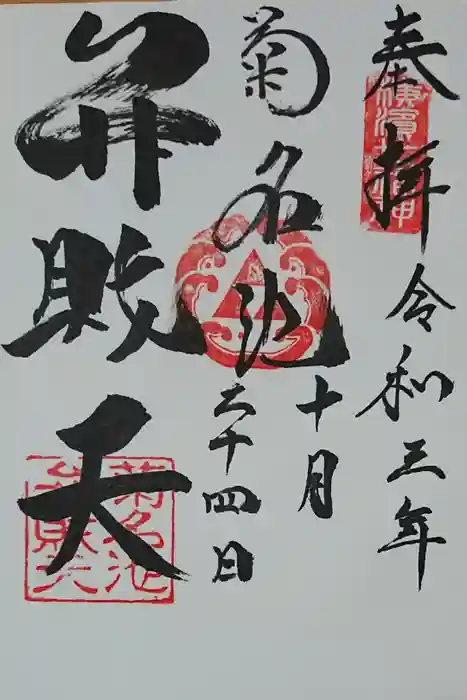 奉拝
令和三年
十月
二十四日
菊名池
弁財天
菊名池
弁財天